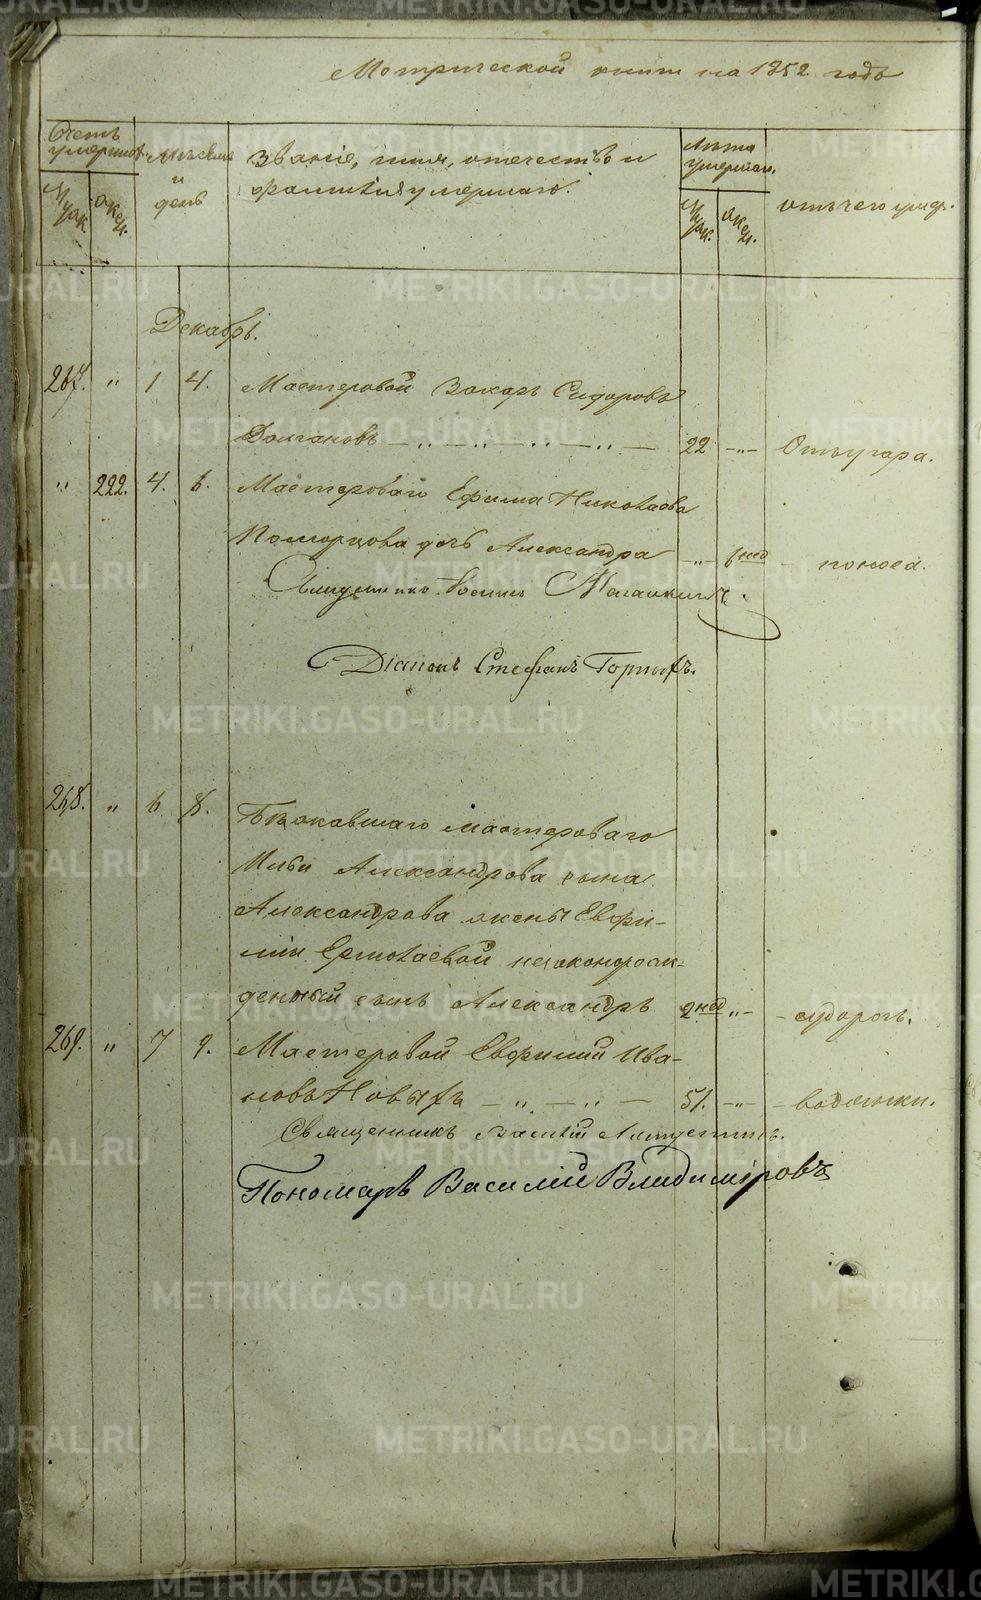 Метрической книги на 1852 годъ
Счетъ умершихъ
Мѣсяцъ и день
Званіе, имя, отечество и фамилія умершаго.
Лѣта умершаго.
Отъ чего умеръ.
Муж. Жен.
Муж. Жен.
Декабрь.
267. " 1 4. Мастеровой Захаръ Сидоровъ
Долгановъ — " — " — " — " — 22 — " — Отъ угара.
" 222. 4. 6. Мастероваго Ефима Николаева
Поморцова дочь Александра — " — 6 нед — поноса.
Діаконъ Стефанъ Горныхъ.
268. " 6 8. Бѣжавшаго мастероваго
Ильи Александрова сына
Александрова жены Евфи-
міи Ермолаевой незаконорож-
денный сынъ Александръ 2 нед " — — судорогъ.
269. " 7 9. Мастеровой Евфимій Ива-
новъ Новыхъ — " — " — 51. — " — — водянки.
Священникъ Василій
Пономарь Василій Владиміровъ
METRIKI.GASO-URAL.RU